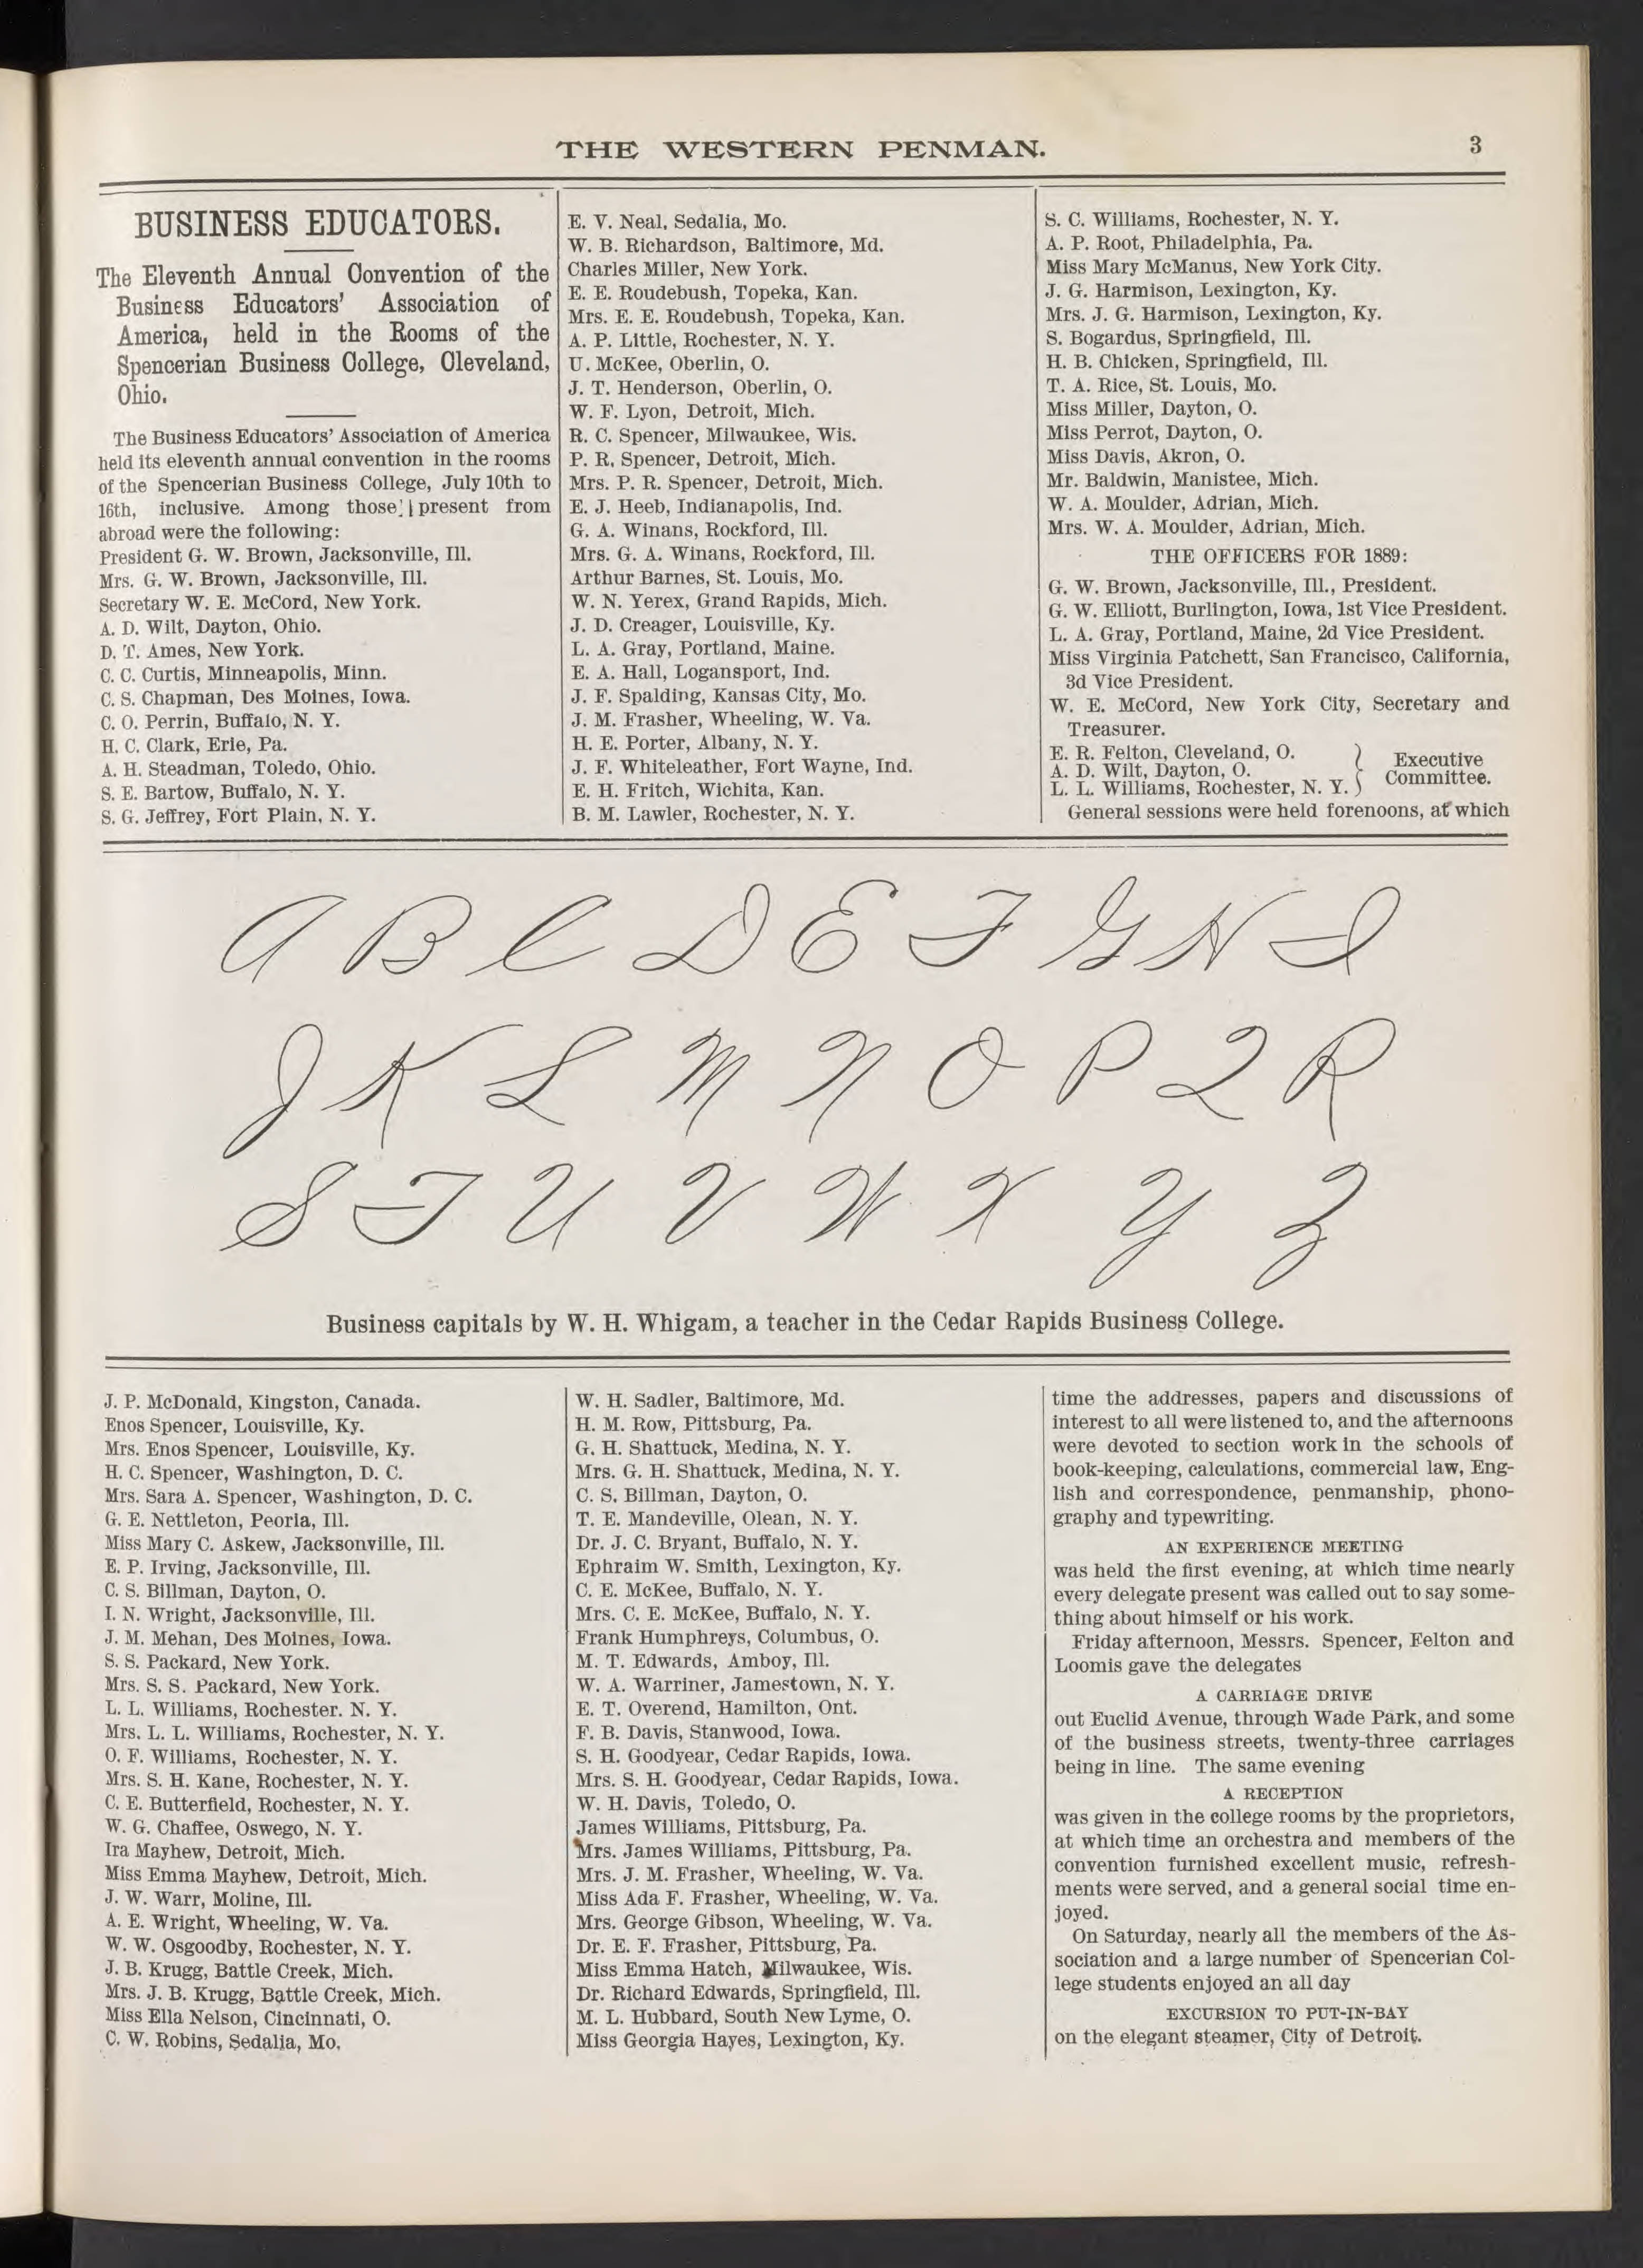 THE WESTERN PENMAN.
3
BUSINESS EDUCATORS.
The Eleventh Annual Convention of the
Business Educators' Association of
America, held in the Rooms of the
Spencerian Business College, Cleveland,
Ohio.
The Business Educators' Association of America
held its eleventh annual convention in the rooms
of the Spencerian Business College, July 10th to
16th, inclusive. Among those present from
abroad were the following:
President G. W. Brown, Jacksonville, Ill.
Mrs. G. W. Brown, Jacksonville, Ill.
Secretary W. E. McCord, New York.
A. D. Wilt, Dayton, Ohio.
D. T. Ames, New York.
C. C. Curtis, Minneapolis, Minn.
C. S. Chapman, Des Moines, Iowa.
C. O. Perrin, Buffalo, N. Y.
H. C. Clark, Erie, Pa.
A. H. Steadman, Toledo, Ohio.
S. E. Bartow, Buffalo, N. Y.
S. G. Jeffrey, Fort Plain, N. Y.
J. P. McDonald, Kingston, Canada.
Enos Spencer, Louisville, Ky.
Mrs. Enos Spencer, Louisville, Ky.
H. C. Spencer, Washington, D. C.
Mrs. Sara A. Spencer, Washington, D. C.
G. E. Nettleton, Peoria, Ill.
Miss Mary C. Askew, Jacksonville, Ill.
E. P. Irving, Jacksonville, Ill.
C. S. Billman, Dayton, O.
I. N. Wright, Jacksonville, Ill.
J. M. Mehan, Des Moines, Iowa.
S. S. Packard, New York.
Mrs. S. S. Packard, New York.
L. L. Williams, Rochester. N. Y.
Mrs. L. L. Williams, Rochester, N. Y.
O. F. Williams, Rochester, N. Y.
Mrs. S. H. Kane, Rochester, N. Y.
C. E. Butterfield, Rochester, N. Y.
W. G. Chaffee, Oswego, N. Y.
Ira Mayhew, Detroit, Mich.
Miss Emma Mayhew, Detroit, Mich.
J. W. Warr, Moline, Ill.
A. E. Wright, Wheeling, W. Va.
W. W. Osgoodby, Rochester, N. Y.
J. B. Krugg, Battle Creek, Mich.
Mrs. J. B. Krugg, Battle Creek, Mich.
Miss Ella Nelson, Cincinnati, O.
C. W. Robins, Sedalia, Mo.
E. V. Neal, Sedalia, Mo.
W. B. Richardson, Baltimore, Md.
Charles Miller, New York.
E. E. Roudebush, Topeka, Kan.
Mrs. E. E. Roudebush, Topeka, Kan.
A. P. Little, Rochester, N. Y.
U. McKee, Oberlin, O.
J. T. Henderson, Oberlin, O.
W. F. Lyon, Detroit, Mich.
R. C. Spencer, Milwaukee, Wis.
P. R. Spencer, Detroit, Mich.
Mrs. P. R. Spencer, Detroit, Mich.
E. J. Heeb, Indianapolis, Ind.
G. A. Winans, Rockford, Ill.
Mrs. G. A. Winans, Rockford, Ill.
Arthur Barnes, St. Louis, Mo.
W. N. Yerex, Grand Rapids, Mich.
J. D. Creager, Louisville, Ky.
L. A. Gray, Portland, Maine.
E. A. Hall, Logansport, Ind.
J. F. Spalding, Kansas City, Mo.
J. M. Frasher, Wheeling, W. Va.
H. E. Porter, Albany, N. Y.
J. F. Whiteleather, Fort Wayne, Ind.
E. H. Fritch, Wichita, Kan.
B. M. Lawler, Rochester, N. Y.
W. H. Sadler, Baltimore, Md.
H. M. Row, Pittsburg, Pa.
G. H. Shattuck, Medina, N. Y.
Mrs. G. H. Shattuck, Medina, N. Y.
C. S. Billman, Dayton, O.
T. E. Mandeville, Olean, N. Y.
Dr. J. C. Bryant, Buffalo, N. Y.
Ephraim W. Smith, Lexington, Ky.
C. E. McKee, Buffalo, N. Y.
Mrs. C. E. McKee, Buffalo, N. Y.
Frank Humphreys, Columbus, O.
M. T. Edwards, Amboy, Ill.
W. A. Warriner, Jamestown, N. Y.
E. T. Overend, Hamilton, Ont.
F. B. Davis, Stanwood, Iowa.
S. H. Goodyear, Cedar Rapids, Iowa.
Mrs. S. H. Goodyear, Cedar Rapids, Iowa.
W. H. Davis, Toledo, O.
James Williams, Pittsburg, Pa.
Mrs. James Williams, Pittsburg, Pa.
Mrs. J. M. Frasher, Wheeling, W. Va.
Miss Ada F. Frasher, Wheeling, W. Va.
Mrs. George Gibson, Wheeling, W. Va.
Dr. E. F. Frasher, Pittsburg, Pa.
Miss Emma Hatch, Milwaukee, Wis.
Dr. Richard Edwards, Springfield, Ill.
M. L. Hubbard, South New Lyme, O.
Miss Georgia Hayes, Lexington, Ky.
S. C. Williams, Rochester, N. Y.
A. P. Root, Philadelphia, Pa.
Miss Mary McManus, New York City.
J. G. Harmison, Lexington, Ky.
Mrs. J. G. Harmison, Lexington, Ky.
S. Bogardus, Springfield, Ill.
H. B. Chicken, Springfield, Ill.
T. A. Rice, St. Louis, Mo.
Miss Miller, Dayton, O.
Miss Perrot, Dayton, O.
Miss Davis, Akron, O.
Mr. Baldwin, Manistee, Mich.
W. A. Moulder, Adrian, Mich.
Mrs. W. A. Moulder, Adrian, Mich.
THE OFFICERS FOR 1889:
G. W. Brown, Jacksonville, Ill., President.
G. W. Elliott, Burlington, Iowa, 1st Vice President.
L. A. Gray, Portland, Maine, 2d Vice President.
Miss Virginia Patchett, San Francisco, California,
3d Vice President.
W. E. McCord, New York City, Secretary and
Treasurer.
E. R. Felton, Cleveland, O.
A. D. Wilt, Dayton, O.
L. L. Williams, Rochester, N. Y.
Executive
Committee.
General sessions were held forenoons, at which
time the addresses, papers and discussions of
interest to all were listened to, and the afternoons
were devoted to section work in the schools of
book-keeping, calculations, commercial law, Eng-
lish and correspondence, penmanship, phono-
graphy and typewriting.
AN EXPERIENCE MEETING
was held the first evening, at which time nearly
every delegate present was called out to say some-
thing about himself or his work.
Friday afternoon, Messrs. Spencer, Felton and
Loomis gave the delegates
A CARRIAGE DRIVE
out Euclid Avenue, through Wade Park, and some
of the business streets, twenty-three carriages
being in line. The same evening
A RECEPTION
was given in the college rooms by the proprietors,
at which time an orchestra and members of the
convention furnished excellent music, refresh-
ments were served, and a general social time en-
joyed.
On Saturday, nearly all the members of the As-
sociation and a large number of Spencerian Col-
lege students enjoyed an all day
EXCURSION TO PUT-IN-BAY
on the elegant steamer, City of Detroit.
A B C D E F G H I
J K L M N O P Q R
S T U V W X Y Z
Business capitals by W. H. Whigam, a teacher in the Cedar Rapids Business College.